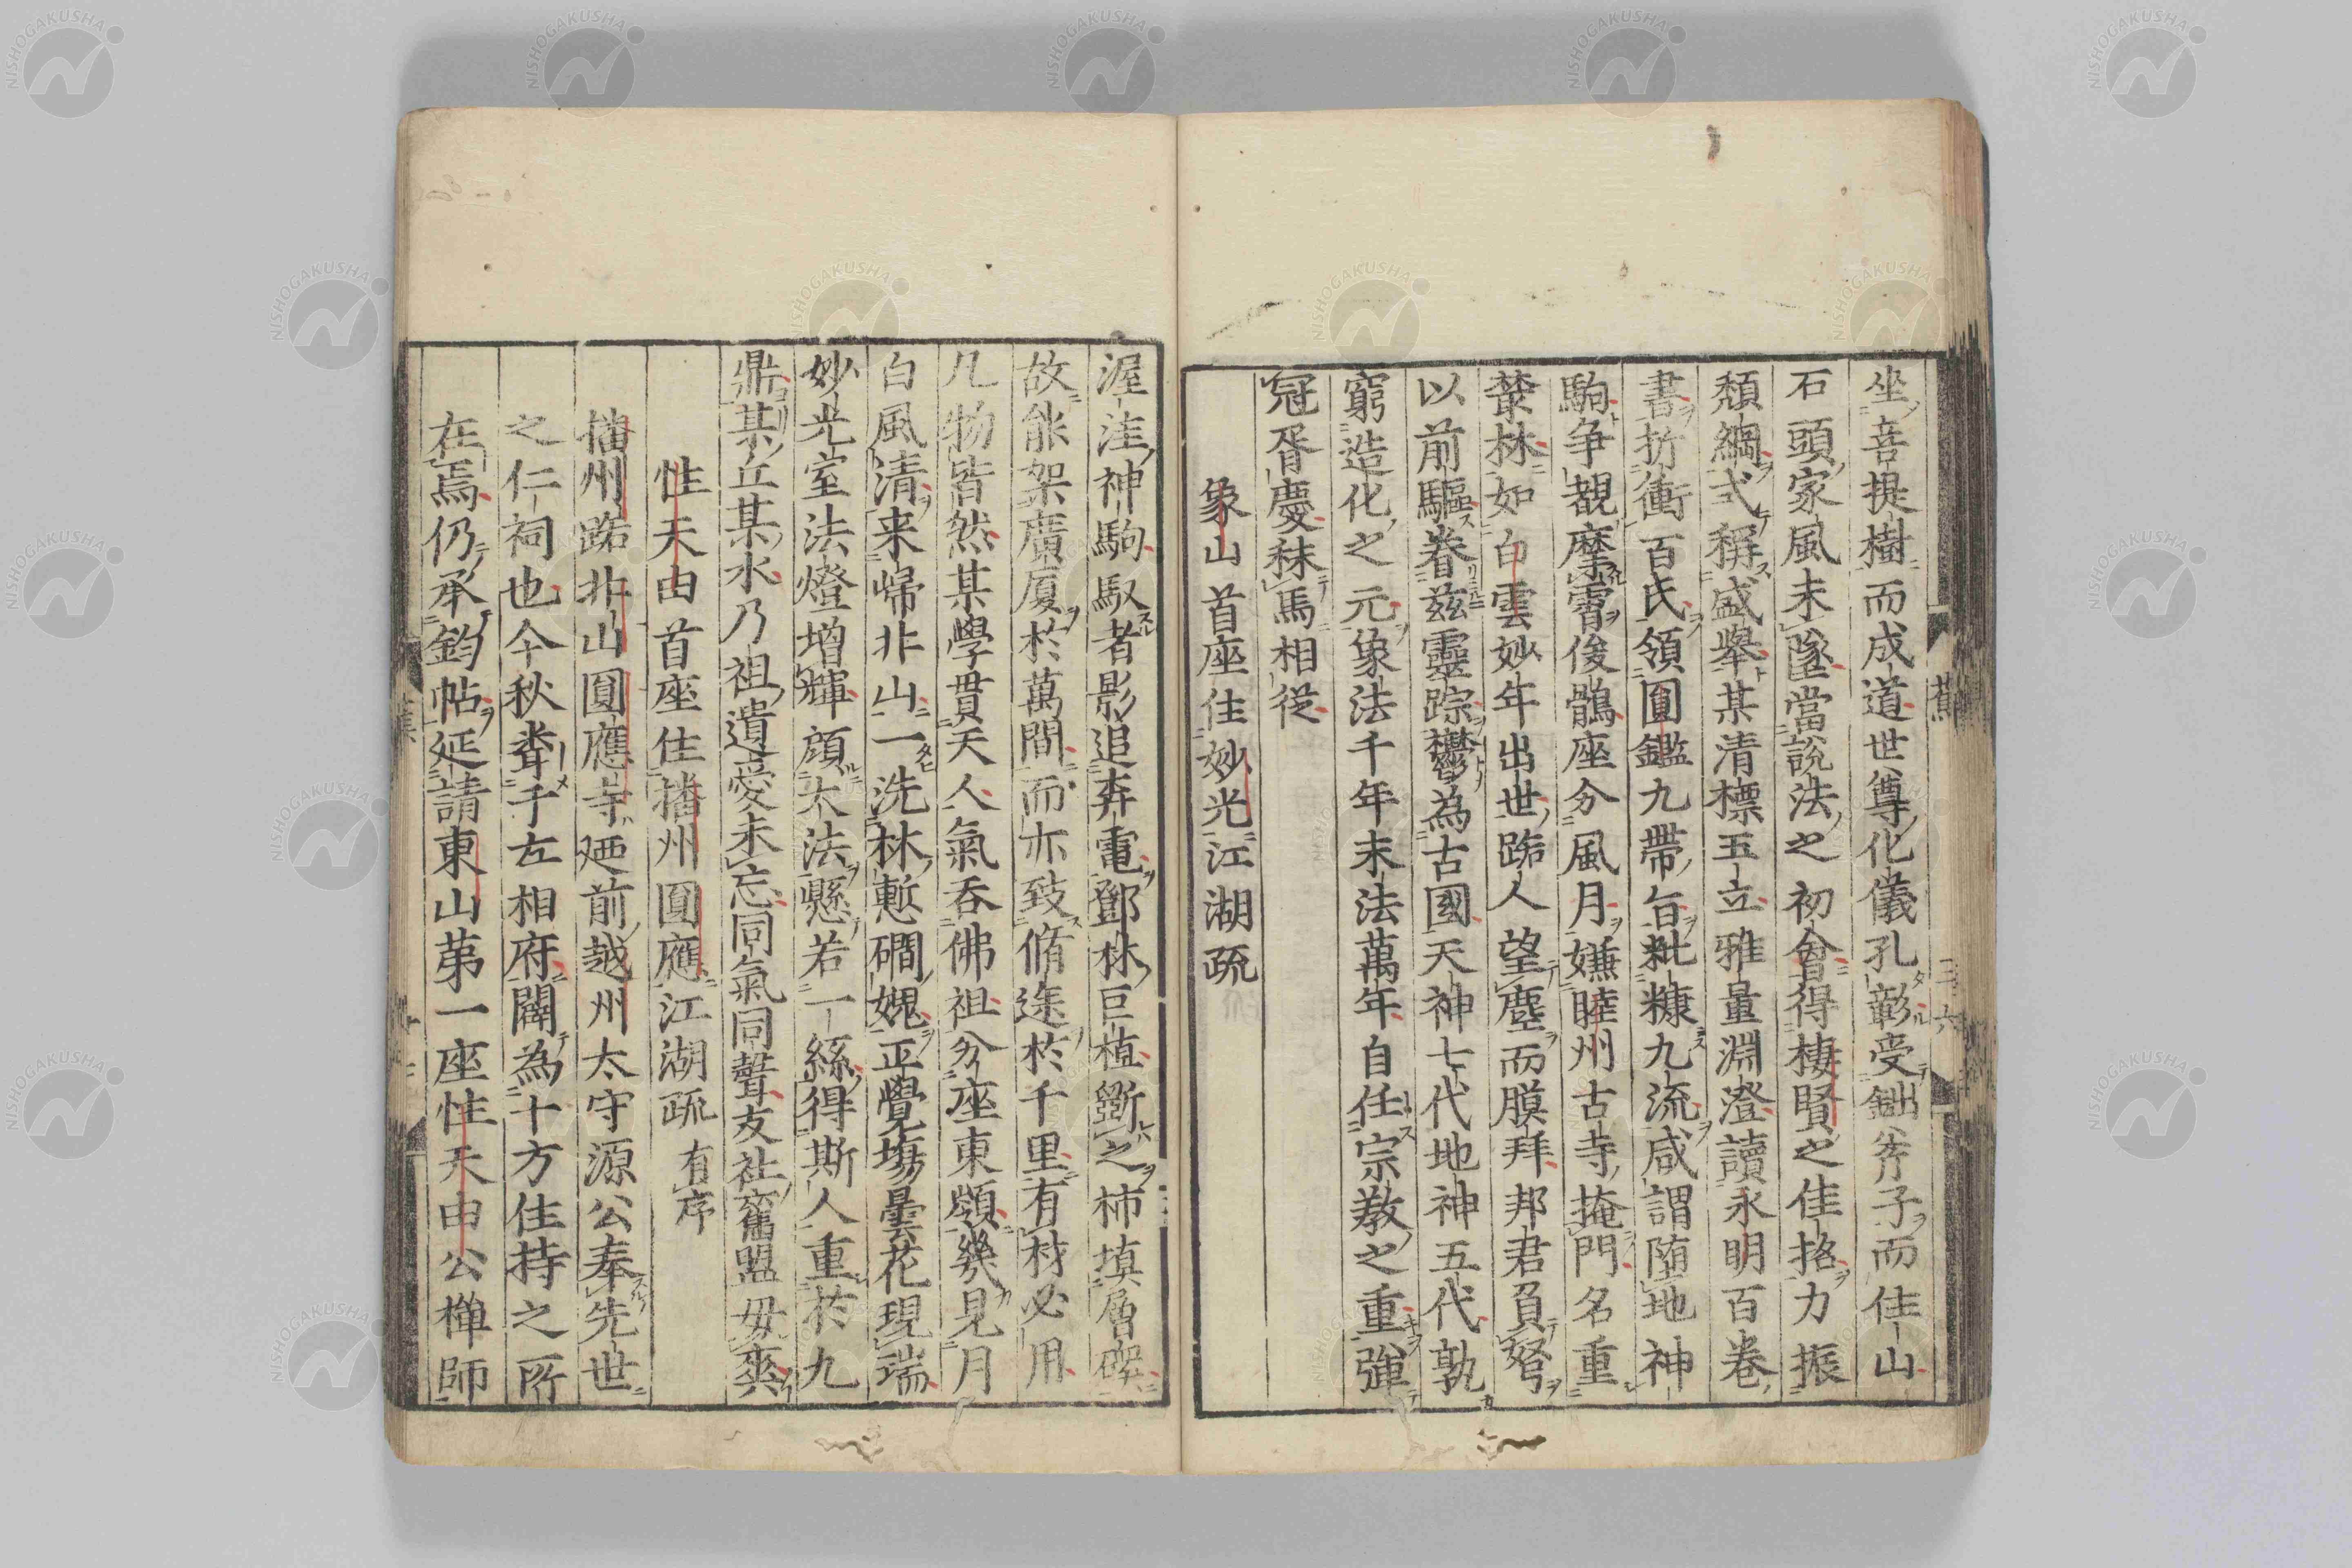 坐菩提樹而成道世尊化儀孔彰受鈯斧子而住山
石頭家風未墜當說法之初會得棲賢之佳挌力振
頹綱式稱盛舉某清標玉立雅量淵澄讀永明百卷
書折衝百氏領圓鑑九帶旨粃糠九流咸謂堕地神
駒争覩摩霄俊鶻座分風月嫌睦州古寺掩門名重
叢林如白雲妙年出世跕人望塵而膜拜邦君負弩
以前驅眷茲靈踪欝為古國天神七代地神五代孰
窮造化之元象法千年末法萬年自任宗教之重彈
冠胥慶秣馬相從
象山首座住妙光江湖疏
渥洼神駒馭者影追奔電鄧林巨植斵之柿填層碶
故能架廣厦於萬間而亦致脩途於千里有材必用
凡物皆然某學貫天人氣吞佛祖分座東嶺幾見月
白風清来歸北山一洗林慙磵媿正覺場曇花現瑞
妙光室法燈增輝顧大法懸若一絲得斯人重於九
鼎某丘某水乃祖遺愛未忘同氣同聲友社舊盟毋爽
性天由首座住播州圓應江湖疏 有序
播州路北山圓應寺廼前越州太守源公奉先世
之仁祠也今秋耸于左相府闢為十方住持之所
在焉仍承鈞帖延請東山第一座性天由公禅師
蕉
二六